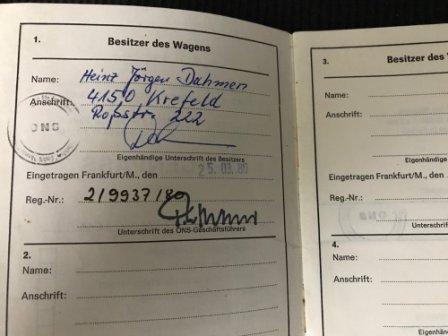 1. Besitzer des Wagens
Name: Heinz Jürgen Dahmen
Anschrift: 4150 Krefeld
Roßstr. 222
Eigenhändige Unterschrift des Besitzers
Eingetragen Frankfurt/M., den 25.03.80
Reg.-Nr.: 2/9937/80
Unterschrift des ONS-Geschäftsführers
2.
Name:
Anschrift:
ONS
3. Besitzer des W
Name:
Anschrift:
Eigenhändige
Eingetragen Frankfurt/M., den
Reg.-Nr.:
Unterschrift des ON
4.
Name:
Anschrift: